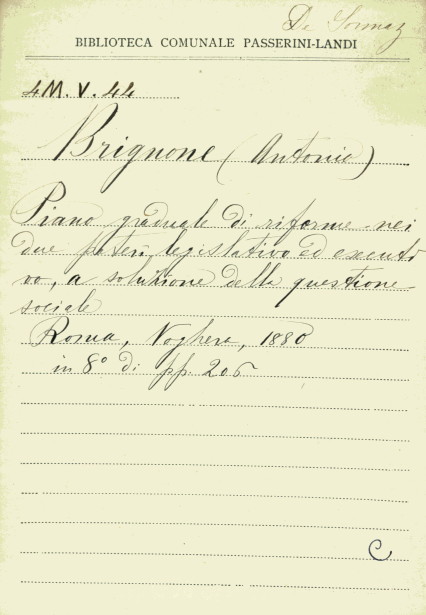 De Sormaz
BIBLIOTECA COMUNALE PASSERINI-LANDI
4M.V.44
Brignone (Antonio)
Piano graduale di riforme nei
due poteri, legislativo ed executi
vo, a soluzione della questione
sociale
Roma, Voghera, 1880
in 8° di pp. 206
C